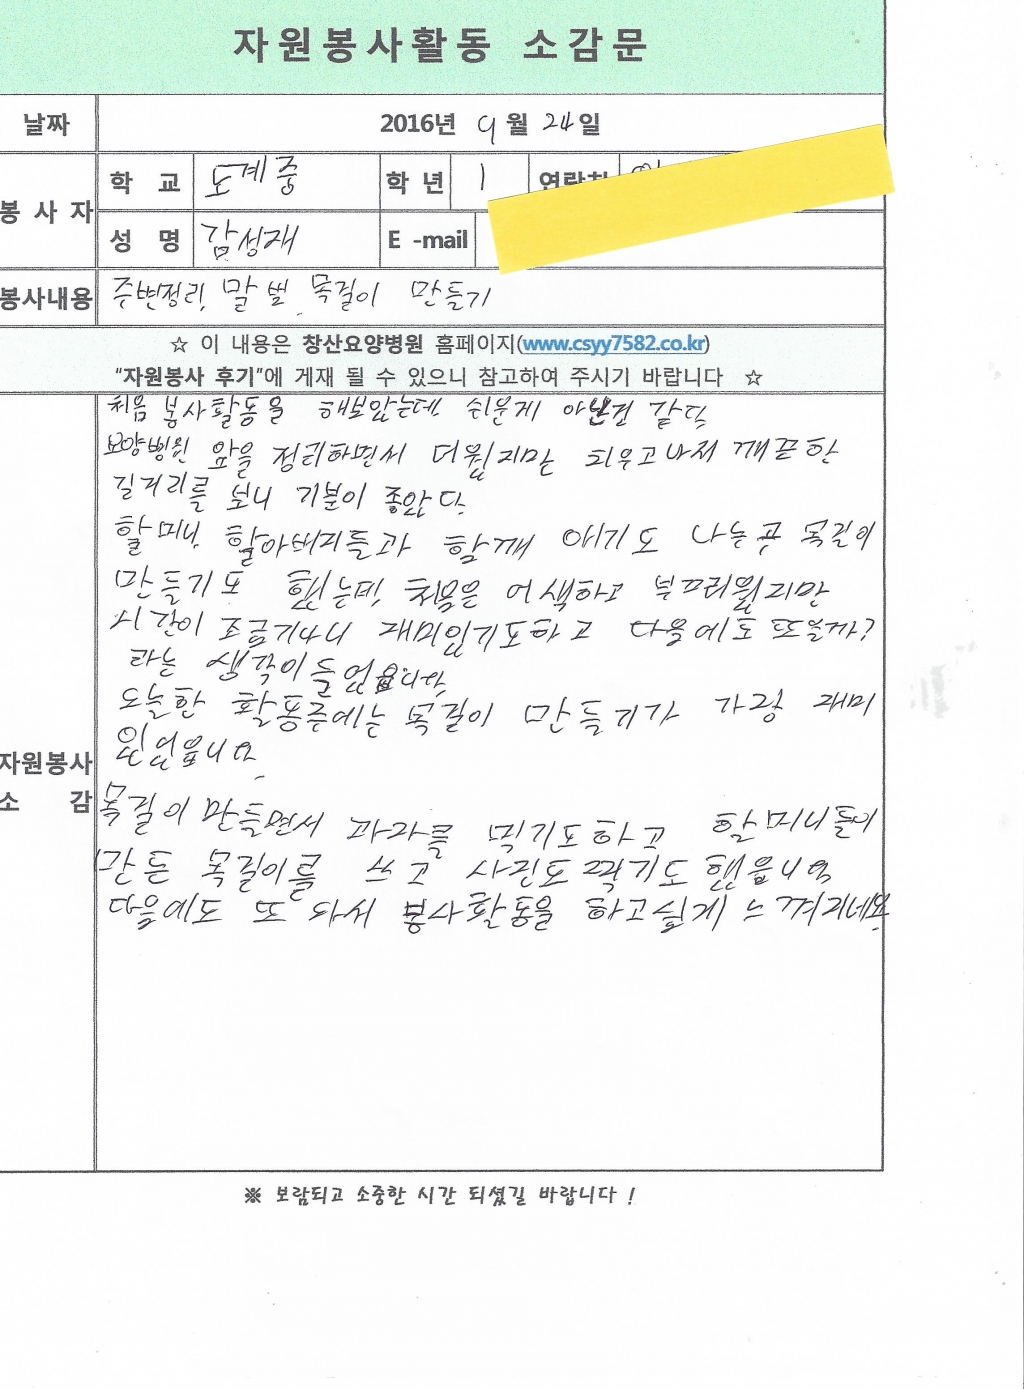 자원봉사활동 소감문
날짜 2016년 9월 24일
봉사자 학교 도계중 학년 1 연락처
성명 감성재 E-mail
봉사내용 주변정리, 말벗, 목걸이 만들기
☆ 이 내용은 창산요양병원 홈페이지(www.csyy7582.co.kr)
“자원봉사 후기”에 게재 될 수 있으니 참고하여 주시기 바랍니다 ☆
처음 봉사활동을 해보았는데 쉬운게 아닌건 같다
요양병원 앞을 정리하면서 더웠지만 치우고나서 깨끗한
길거리를 보니 기분이 좋았다.
할머니, 할아버지들과 함께 얘기도 나누고 목걸이
만들기도 했는데, 처음은 어색하고 부끄러웠지만
시간이 조금지나니 재미있기도하고 다음에도 또올까?
라는 생각이들었습니다.
오늘한 활동중에는 목걸이 만들기가 가장 재미
있었습니다.
목걸이 만들면서 과자를 먹기도하고 할머니들이
만든 목걸이를 쓰고 사진도 찍기도 했습니다
다음에도 또 와서 봉사활동을 하고싶게 느껴지네요.
자원봉사
소감
※ 보람되고 소중한 시간 되셨길 바랍니다 !